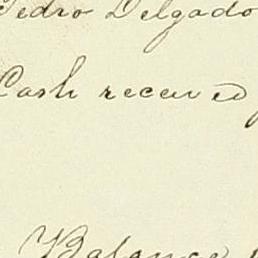 Pedro Delgado
Cash received
Balance